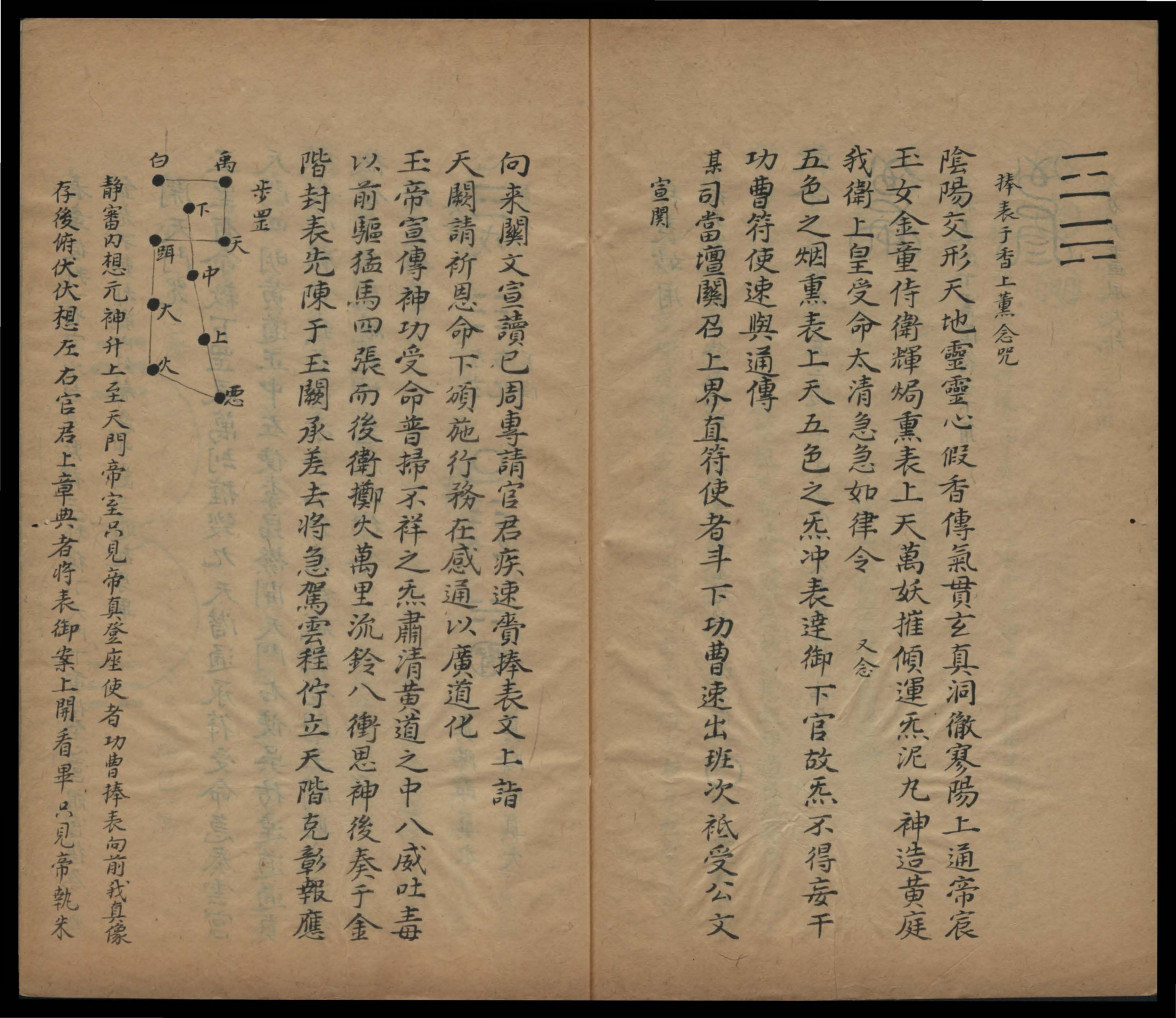 捧表于香上薰念咒
陰陽交形天地靈靈心假香傳氣貫玄真洞徹寥陽上通帝宸
玉女金童侍衛輝焗熏表上天萬妖摧傾運炁泥九神造黃庭
我衛上皇受命太清急急如律令 又念
五色之烟熏表上天五色之炁冲表達御下官故炁不得妄干
功曹符使速與通傳
某司當壇關召上界直符使者斗下功曹速出班次祗受公文
宣関
向来關文宣讀已周專請官君疾速賫捧表文上詣
天闕請祈恩命下頒施行務在感通以廣道化
玉帝宣傳神功受命普掃不祥之炁肅清黃道之中八威吐毒
以前驅猛馬四張而後衛擲火萬里流鈴八衝思神後奏于金
階封表先陳于玉闕承差去將急駕雲程佇立天階克彰報應
步罡
禹
白
下
天
中
大
上
火
静審内想元神升上至天門帝室只見帝真登座使者功曹捧表向前我真像
存後俯伏伏想左右官君上章典者將表御案上開看畢只見帝執朱